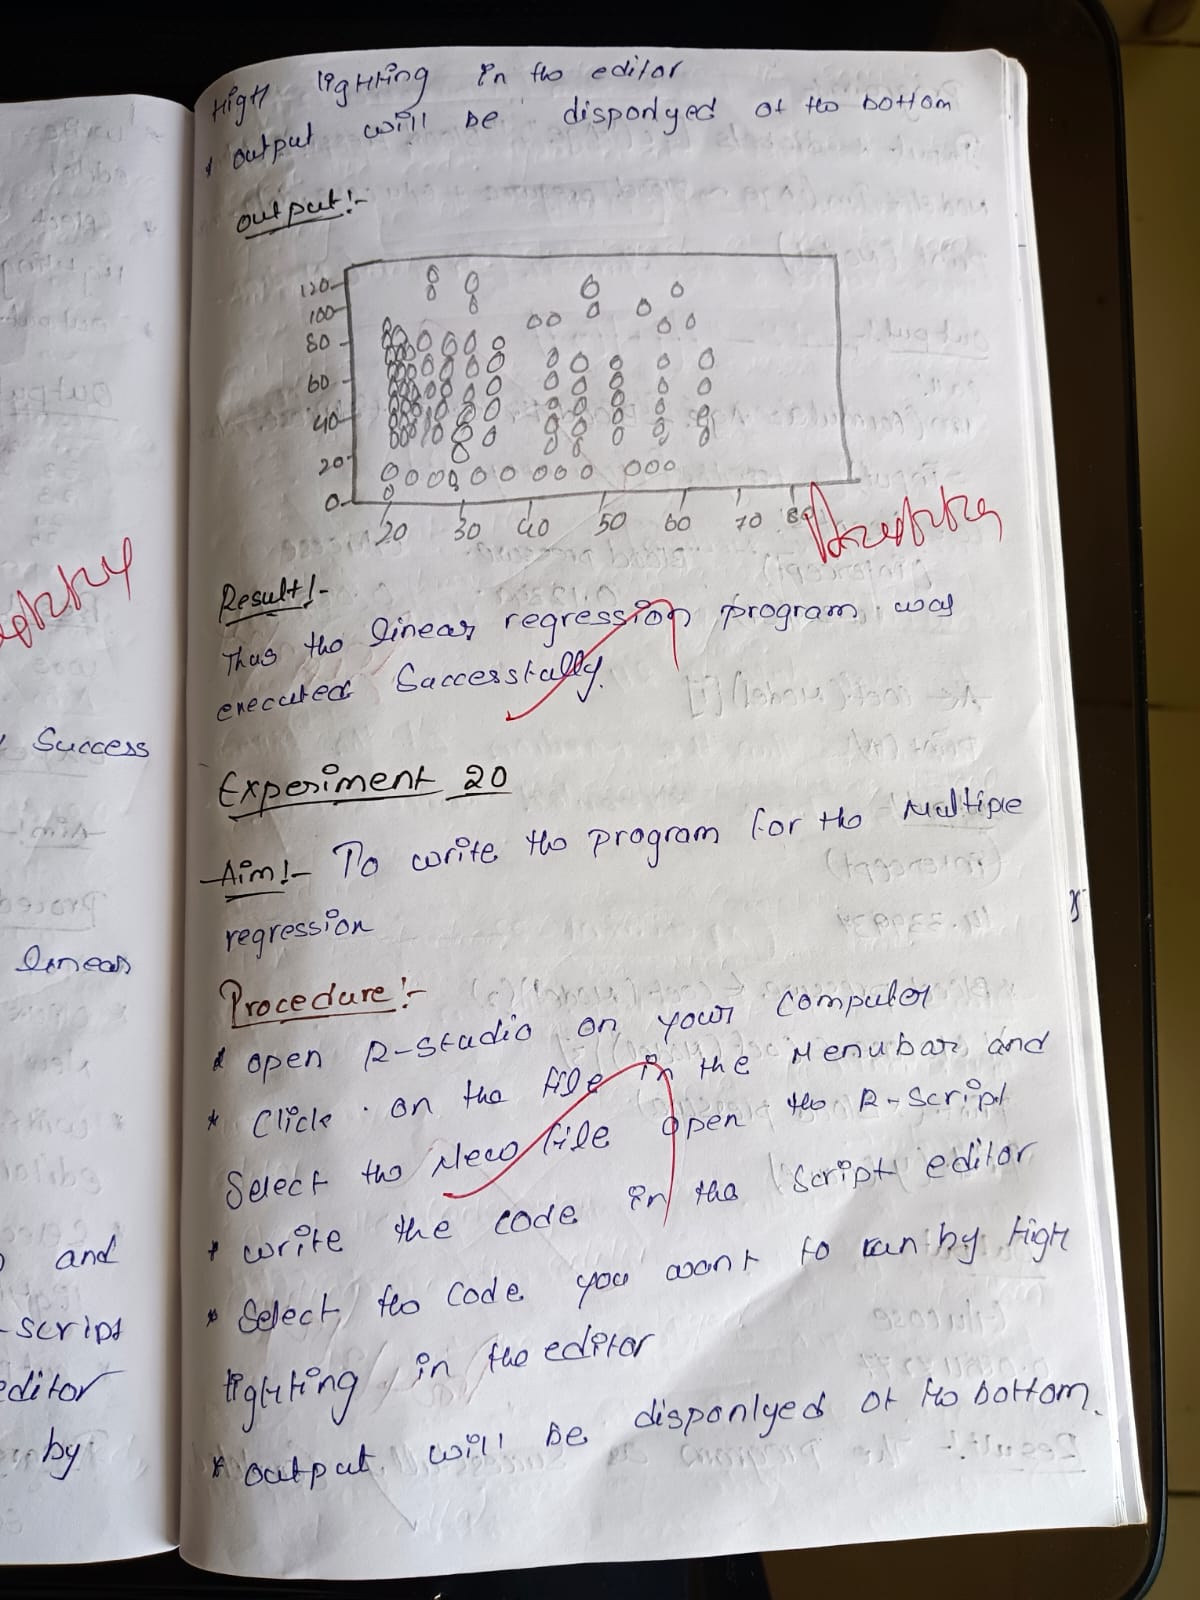 High lighting in the editor
* output will be disponlyed at the bottom
output:-
120
100
80
60
40
20
0
20 30 40 50 60 70 80
Result:-
Thus the linear regression program was
executed Successfully.
Experiment 20
Aim:- To write the program for the Multiple
regression
Procedure:-
* open R-Studio on your computer
* Click on the file in the Menubar and
Select the New file open the R-Script
* write the code in the Script editor
* Select the code you want to run by High
lighting in the editor
* output will be disponlyed at the bottom.
Success
linear
and
-script
editor
by